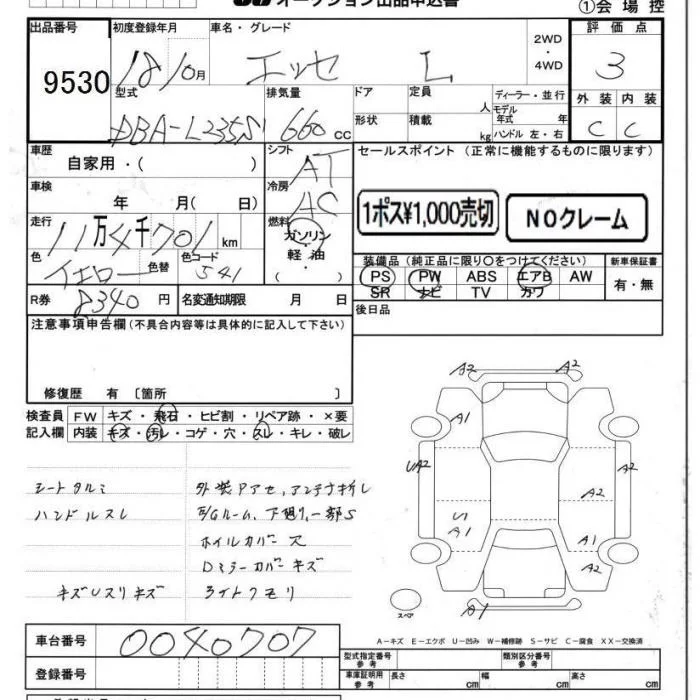 オークション出品申込書
①会場控
出品番号 初度登録年月 車名・グレード 評価点
9530 18/10月 エッセ L 2WD ・ 4WD 3
型式 排気量 ドア 定員 人 ディーラー・並行 外装 内装
DBA-L235S 660cc 形状 積載 kg モデル年式 年 ハンドル 左・右 C C
車歴 自家用・( ) シフト AT セールスポイント (正常に機能するものに限ります)
車検 年 月( 日) 冷房 AC
1ポス¥1,000売切 NOクレーム
走行 11万4千701km 燃料 ガソリン・軽油・( )
色 イエロー 色替 色コード S41
装備品(純正品に限り〇をつけてください) 新車保証書
PS PW ABS エアB AW 有・無
SR ナビ TV カワ
R券 8340円 名変通知期限 月 日
後日品
注意事項申告欄(不具合内容等は具体的に記入して下さい)
修復歴 有 〔箇所 〕
検査員 FW キズ・飛石・ヒビ割・リペア跡・×要
記入欄 内装 キズ・汚レ・コゲ・穴・スレ・キレ・破レ
シートタルミ 外装Pアセ、アンテナ折レ
ハンドルスレ E/Gルーム、下廻り、一部S
ホイルカバー穴
Dミラーカバーキズ
キズUスリキズ ライトクモリ
A2 A2
A1
UA2 A2
A2
U
A1 A1
A2
スペア A1
A-キズ E-エクボ U-凹み W-補修跡 S-サビ C-腐食 XX-交換済
車台番号 0040707
登録番号
型式指定番号 参考 類別区分番号 参考
車庫証明用 参考 長さ cm 幅 cm 高さ cm